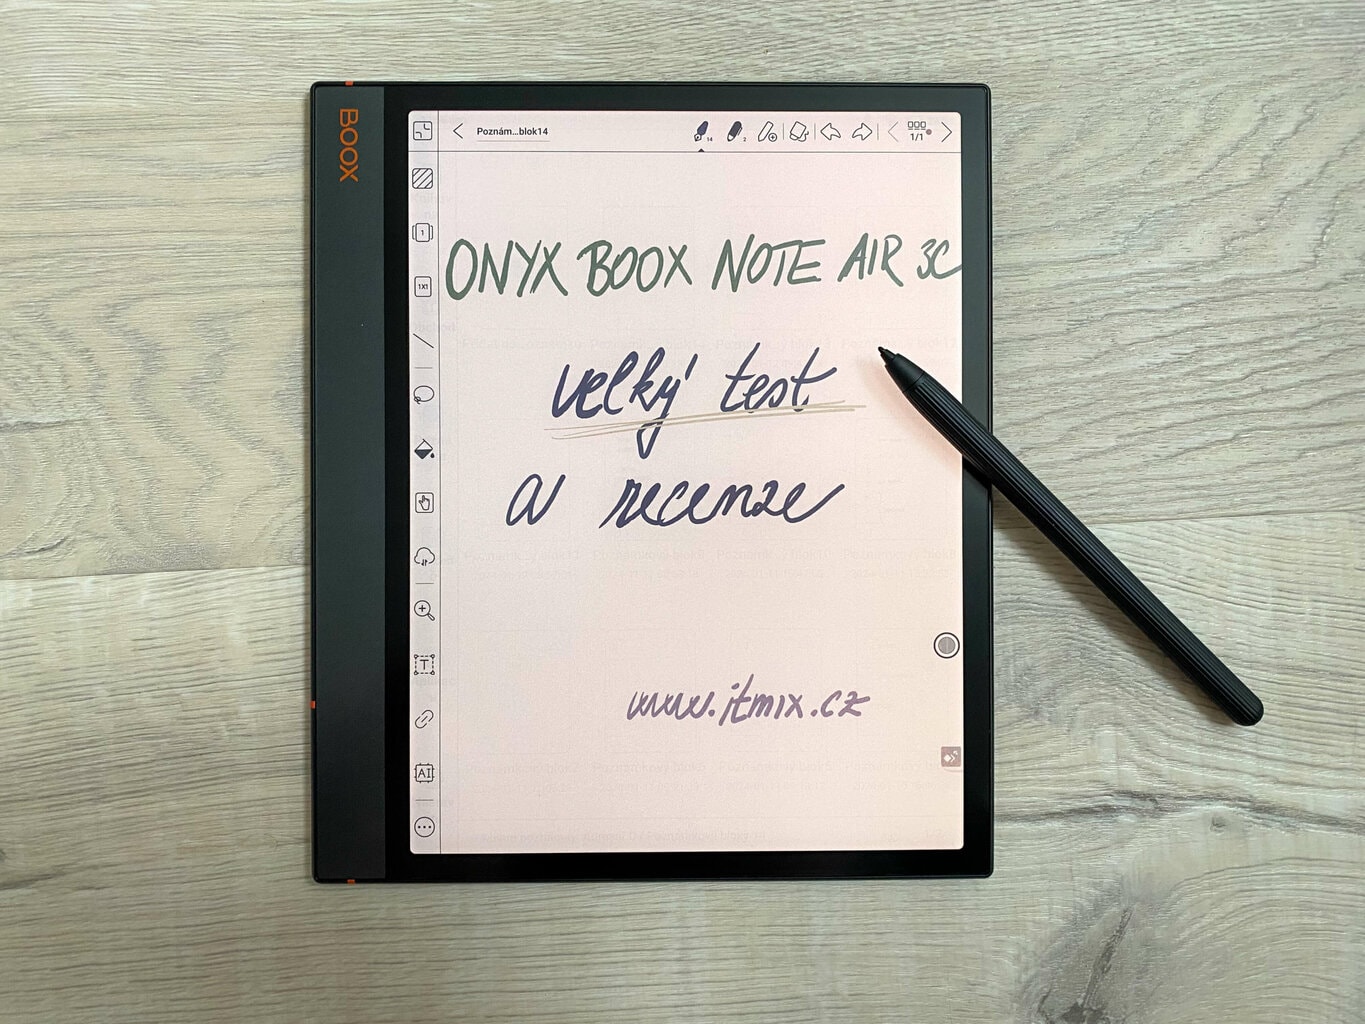 BOOX
Poznám...blok14
14
2
1/1
1
1X1
ONYX BOOX NOTE AIR 3C
velký test
a recenze
T
www.itmix.cz
AI